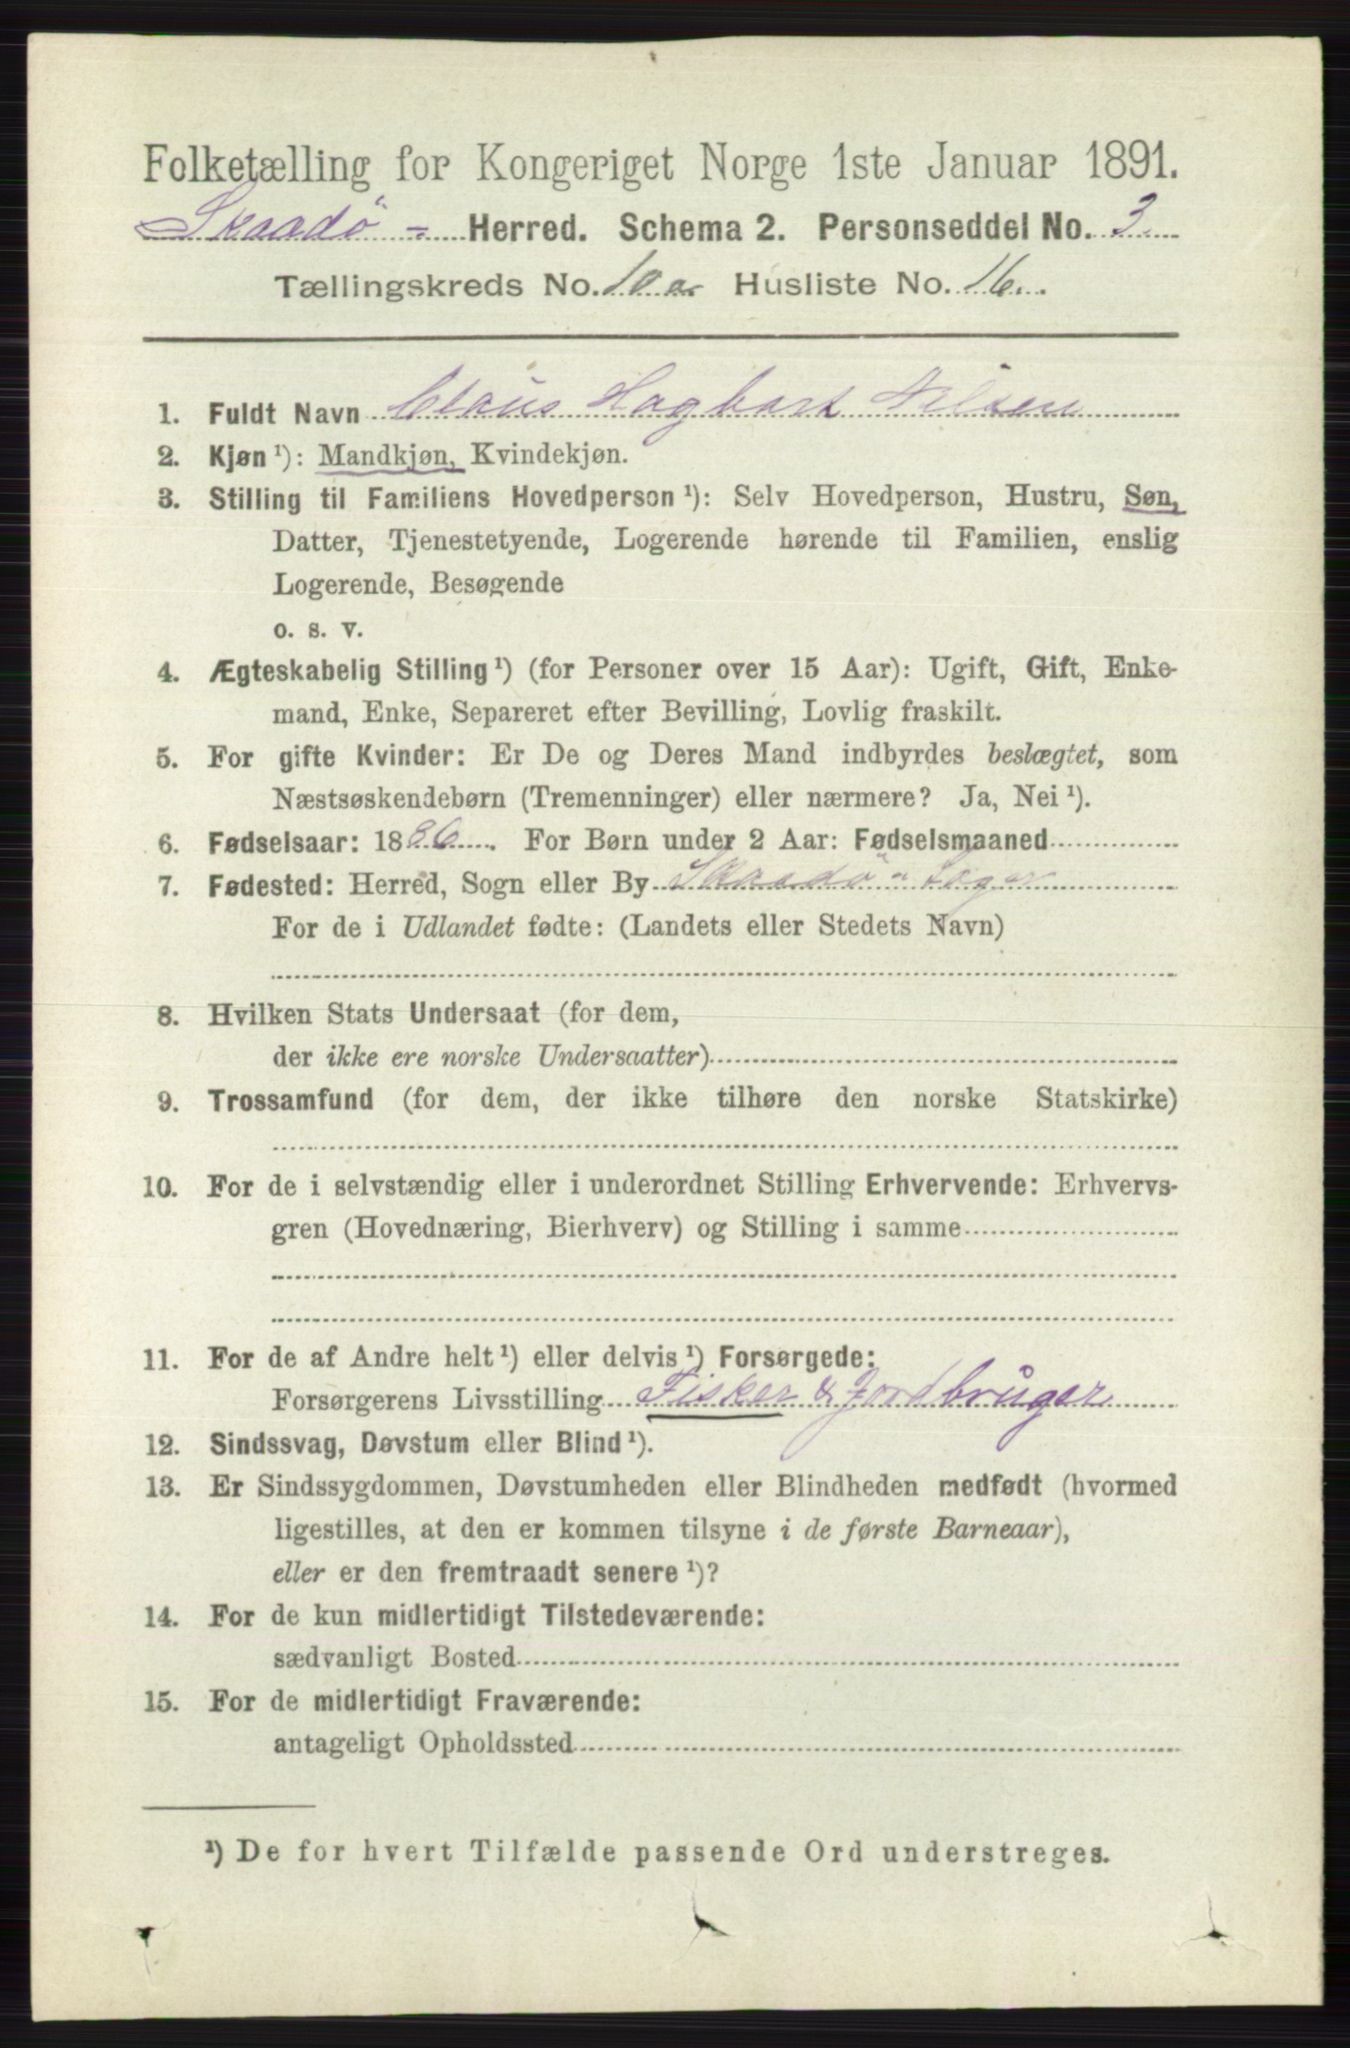 Folketælling for Kongeriget Norge 1ste Januar 1891.
Skaadö - Herred. Schema 2. Personseddel No. 3.
Tællingskreds No. 10 a Husliste No. 16.
1. Fuldt Navn Claus Hagbart Nilsen
2. Kjøn ¹): Mandkjøn, Kvindekjøn.
3. Stilling til Familiens Hovedperson ¹): Selv Hovedperson, Hustru, Søn,
Datter, Tjenestetyende, Logerende hørende til Familien, enslig
Logerende, Besøgende
o. s. v.
4. Ægteskabelig Stilling ¹) (for Personer over 15 Aar): Ugift, Gift, Enke-
mand, Enke, Separeret efter Bevilling, Lovlig fraskilt.
5. For gifte Kvinder: Er De og Deres Mand indbyrdes beslægtet, som
Næstsøskendebørn (Tremenninger) eller nærmere? Ja, Nei ¹).
6. Fødselsaar: 1886. For Børn under 2 Aar: Fødselsmaaned
7. Fødested: Herred, Sogn eller By Skaadö
For de i Udlandet fødte: (Landets eller Stedets Navn)
8. Hvilken Stats Undersaat (for dem,
der ikke ere norske Undersaatter)
9. Trossamfund (for dem, der ikke tilhøre den norske Statskirke)
10. For de i selvstændig eller i underordnet Stilling Erhvervende: Erhvervs-
gren (Hovednæring, Bierhverv) og Stilling i samme
11. For de af Andre helt ¹) eller delvis ¹) Forsørgede:
Forsørgerens Livsstilling Fisker & Jordbruger
12. Sindssvag, Døvstum eller Blind ¹).
13. Er Sindssygdommen, Døvstumheden eller Blindheden medfødt (hvormed
ligestilles, at den er kommen tilsyne i de første Barneaar),
eller er den fremtraadt senere ¹)?
14. For de kun midlertidigt Tilstedeværende:
sædvanligt Bosted
15. For de midlertidigt Fraværende:
antageligt Opholdssted
¹) De for hvert Tilfælde passende Ord understreges.